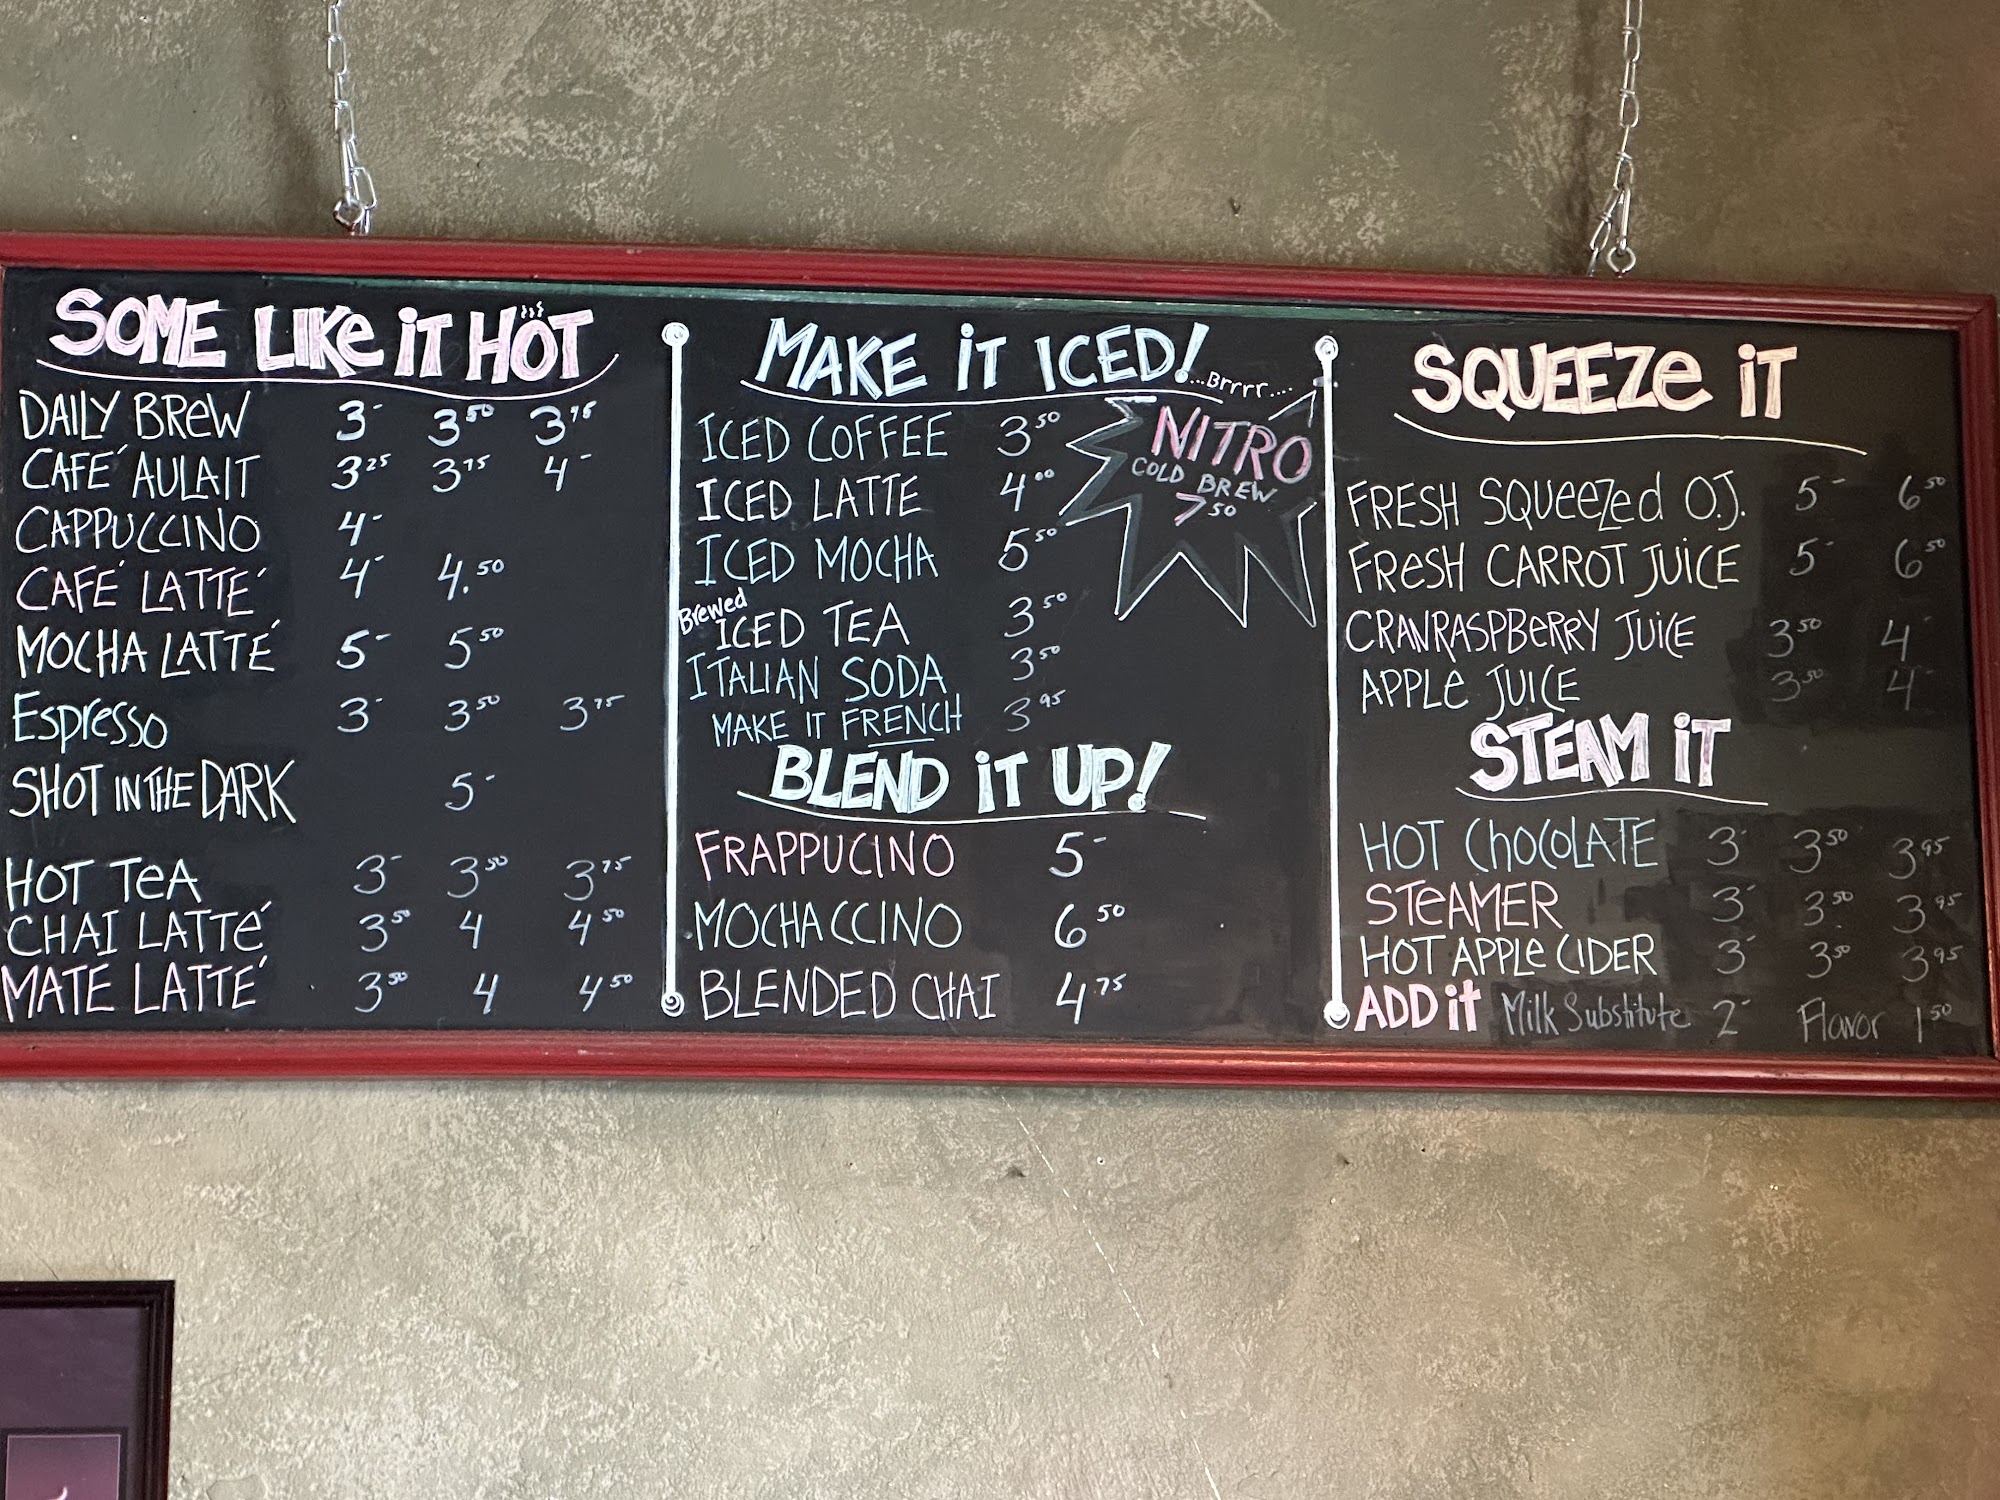 SOME LIKE iT HOT
DAILY BREW 3- 3.50 3.75
CAFÉ AULAIT 3.25 3.75 4-
CAPPUCCINO 4-
CAFÉ LATTÉ 4- 4.50
MOCHA LATTÉ 5- 5.50
Espresso 3- 3.50 3.75
SHOT IN THE DARK 5-
HOT TeA 3- 3.50 3.75
CHAI LATTé 3.50 4 4.50
MATE LATTÉ 3.50 4 4.50
MAKE iT ICED! ...Brrrr....
ICED COFFEE 3.50
ICED LATTE 4.00
ICED MOCHA 5.50
Brewed ICED TEA 3.50
ITALIAN SODA 3.50
MAKE IT FRENCH 3.95
NITRO
COLD BREW
7.50
BLEND iT UP!
FRAPPUCINO 5-
MOCHACCINO 6.50
BLENDED CHAI 4.75
SQUEEZe iT
FRESH SQueeZed O.J. 5- 6.50
FResH CARROT JUiCE 5- 6.50
CRANRASPBeRRY JUiCE 3.50 4-
APPLe JUICE 3.50 4-
STEAM iT
HOT ChoCOLATE 3- 3.50 3.95
STeAMER 3- 3.50 3.95
HOT APPLe CIDER 3- 3.50 3.95
ADD it Milk Substitute 2- Flavor 1.50